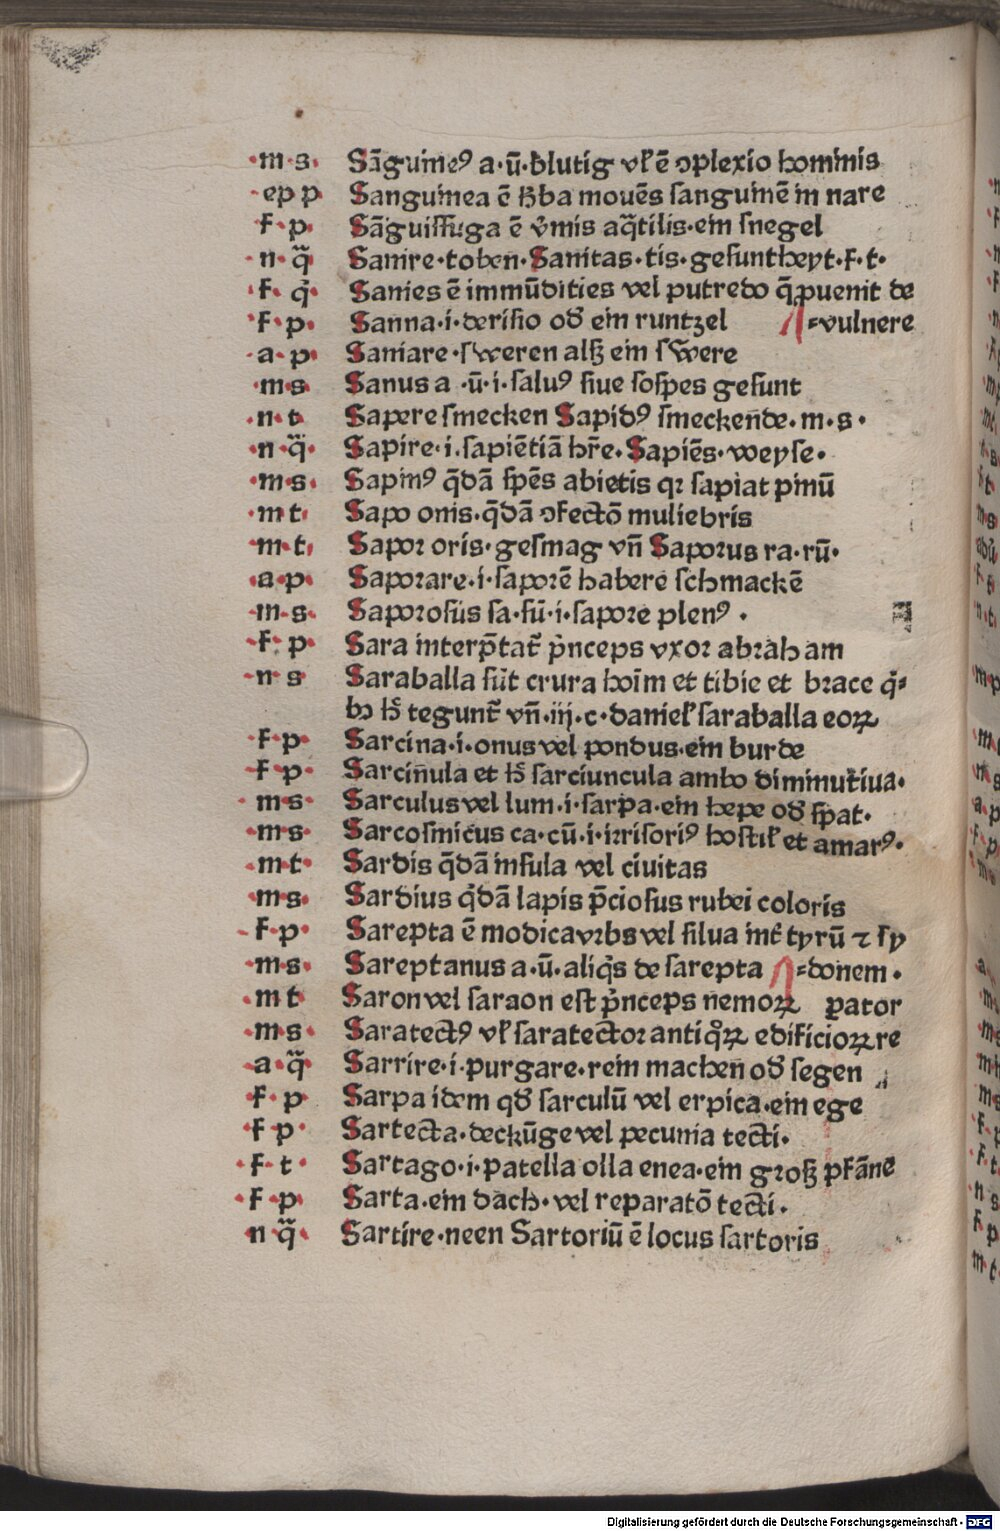 ·m·s· Sāguineꝰ a·ū·blutig vl̕ ē ꝯplexio hominis
·ep p Sanguinea ē h̕ba mouēs sanguinē in nare
f·p· Sāguissuga ē v̕mis aq̄tilis·ein snegel
·n·q̈· Sanire·toben·Sanitas·tis·gesuntheyt·f·t·
·f· q̇· Sanies ē immūdities vel putredo q̄ ꝓuenit de
·f·p· Sanna·i·derisio od̕ ein runtzel =vulnere
·a·p· Saniare·sweren alß ein swēre
·m·s Sanus a ·ū·i·saluꝰ siue sospes gesunt
·n·t Sapere smecken Sapidꝰ smeckende·m·s·
·n·q̈· Sapire·i·sapiētiā hr̄e·Sapiēs·weyse·
·m·s· Sapinꝰ q̄dā sp̄es abietis qꝛ sapiat pinū
·m t· Sapo onis·q̄dā ꝯfectō muliebris
·m·t· Sapoꝛ oris·gesmag vn̄ Sapoꝛus ra·rū·
·a·p· Sapoꝛare·i·sapoꝛē habere schmackē
·m·s· Sapoꝛosus sa·sū·i·sapoꝛe plenꝰ·
·f·p· Sara interp̄tat̄ pͥnceps vxoꝛ abꝛaham
·n·s Saraballa sūt crura hoīm et tibie et bꝛace qͥ=
bꝫ h̕ tegunt̄ vn̄·iij·c·daniel̕ saraballa eoꝝ
·f·p· Sarcina·i·onus vel pondus·ein burde
·f·p· Sarcinula et h̕ sarciuncula ambo diminutiua·
·m·s· Sarculus vel lum·i·sarpa·ein hepe od̕ spat·
·m·s· Sarcosmicus ca·cū·i·irrisoriꝰ hostil̕ et amarꝰ·
·m·t· Sardis q̄dā insula vel ciuitas
·m·s· Sardius qͥdā lapis p̄ciosus rubei coloris
·f·p· Sarepta ē modica vꝛbs vel silua int̕ tyrū ⁊ sy
·m·s· Sareptanus a·ū·aliqͥs de sarepta =donem·
·m t· Saron vel saraon est pͥnceps nemoꝝ ꝑator
·m·s· Saratectꝰ vl̕ saratectoꝛ antiqͦꝝ edificioꝝ re
·a·q̈· Sarrire·i·purgare·rein machen od̕ segen
·f·p Sarpa idem qd̕ sarculū vel erpica·ein ege
·f p· Sartecta·deckūge vel pecunia tecti·
·f·t· Sartago·i·patella olla enea·ein gꝛoß pfānē
·f·p· Sarta·ein dach·vel reparatō tecti·
n·q̈· Sartire·neen Sartoriū ē locus sartoris
Digitalisierung gefördert durch die Deutsche Forschungsgemeinschaft - DFG